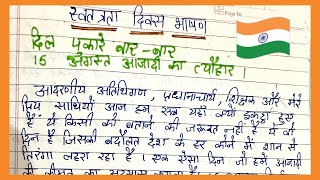 स्वतंत्रता दिवस भाषण
दिल पुकारे बार-बार
15 अगस्त आजादी का त्यौहार।
आदरणीय अतिथिगण, प्रधानाचार्य, शिक्षक और मेरे
प्रिय साथियों आज हम सब यहाँ क्यों इकट्ठा हुए
हैं ये किसी को बताने की जरूरत नहीं है ये वो
दिन है जिसकी बदौलत देश के हर कोने में शान से
तिरंगा लहरा रहा है। एक ऐसा दिन जो हमें आजादी